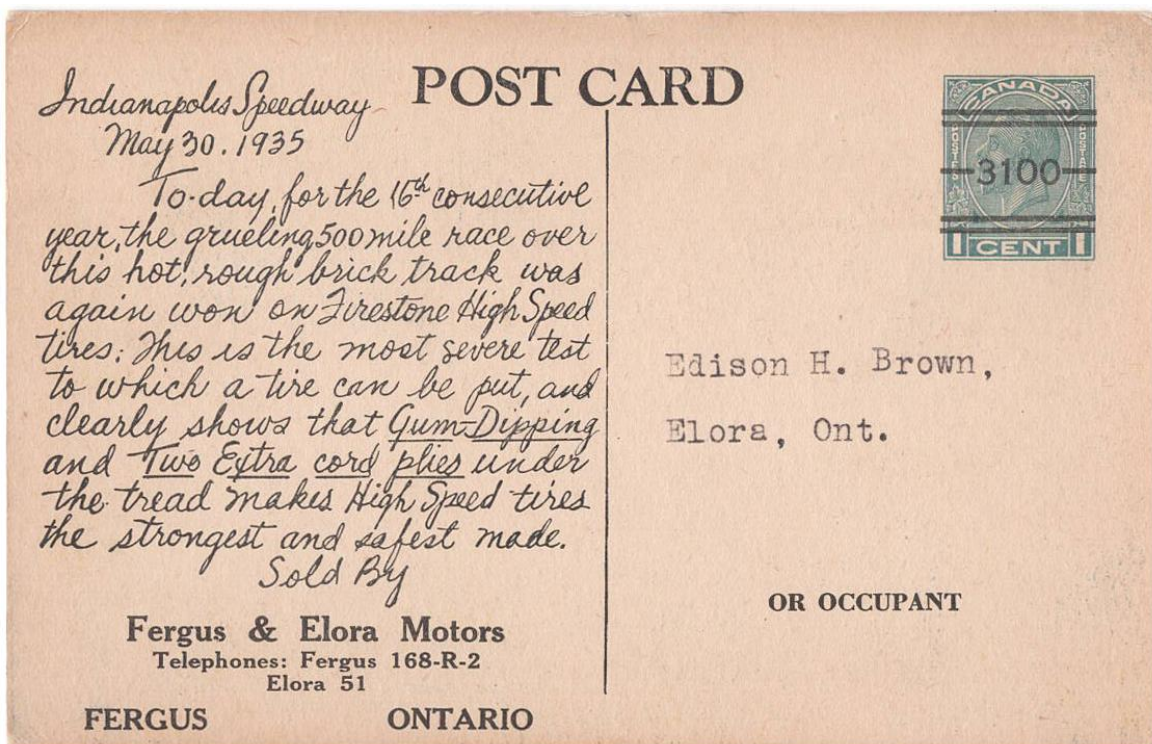 POST CARD
Indianapolis Speedway
May 30. 1935
To-day, for the 16th consecutive
year, the grueling 500 mile race over
this hot, rough brick track was
again won on Firestone High Speed
tires. This is the most severe test
to which a tire can be put, and
clearly shows that Gum-Dipping
and Two Extra cord plies under
the tread makes High Speed tires
the strongest and safest made.
Sold By
Fergus & Elora Motors
Telephones: Fergus 168-R-2
Elora 51
FERGUS ONTARIO
CANADA
POSTES POSTAGE
3100
1 CENT 1
Edison H. Brown,
Elora, Ont.
OR OCCUPANT